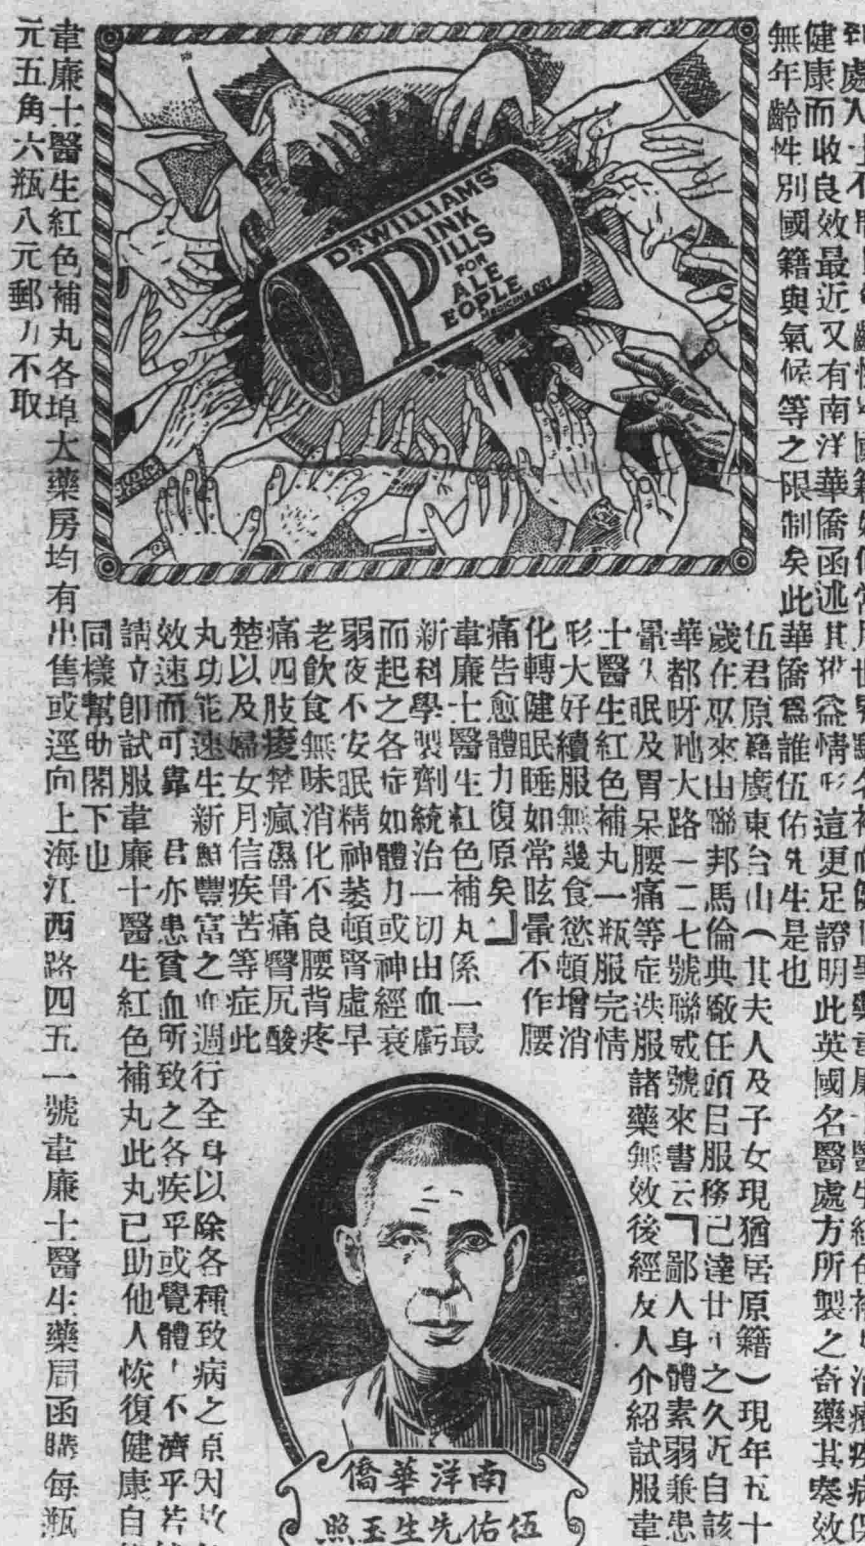 到處人士不國醫生紅色補治療疾病保
健康而收良效最近又有南洋華僑函述其獲益情形這更足證明此英國名醫處方所製之奇藥其奏效
無年齡性別國籍與氣候等之限制矣此華僑爲誰伍佑先生是也
伍君原籍廣東台山（其夫人及子女現猶居原籍）現年五十
歲在來由聯邦馬倫典廠任頭目服務已達廿年之久近自該
華都呀吔大路一二七號聯威號來書云「鄙人身體素弱兼患
暈久眠及胃呆腰痛等症服諸藥無效後經友人介紹試服韋
士醫生紅色補丸一瓶服完情
形大好續服無幾食慾頓增消
化轉健眠睡如常眩暈不作腰
痛告愈體力復原矣」
韋廉士醫生紅色補丸係一最
新科學製劑統治一切由血虧
而起之各症如體力或神經衰
弱夜不安眠精神萎頓腎虛早
老飲食無味消化不良腰背疼
痛四肢痠楚瘋濕骨痛臀尻酸
楚以及婦女月信疾苦等症此
丸功能速生新鮮豐富之血週行全身以除各種致病之原因故
效速而可靠 君亦患貧血所致之各疾乎或覺體力不濟乎若
請立卽試服韋廉士醫生紅色補丸此丸已助他人恢復健康自
同樣幫助閣下也
韋廉士醫生紅色補丸各埠大藥房均有出售或逕向上海江西路四五一號韋廉士醫生藥局函購每瓶
元五角六瓶八元郵力不取
DR WILLIAMS'
PINK
PILLS
FOR
PALE
PEOPLE
南洋華僑
伍佑先生玉照